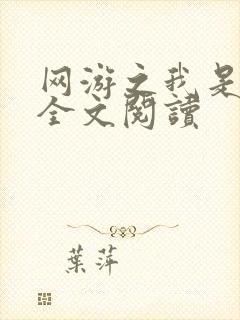 网游之我是
全文閱讀
葉萍